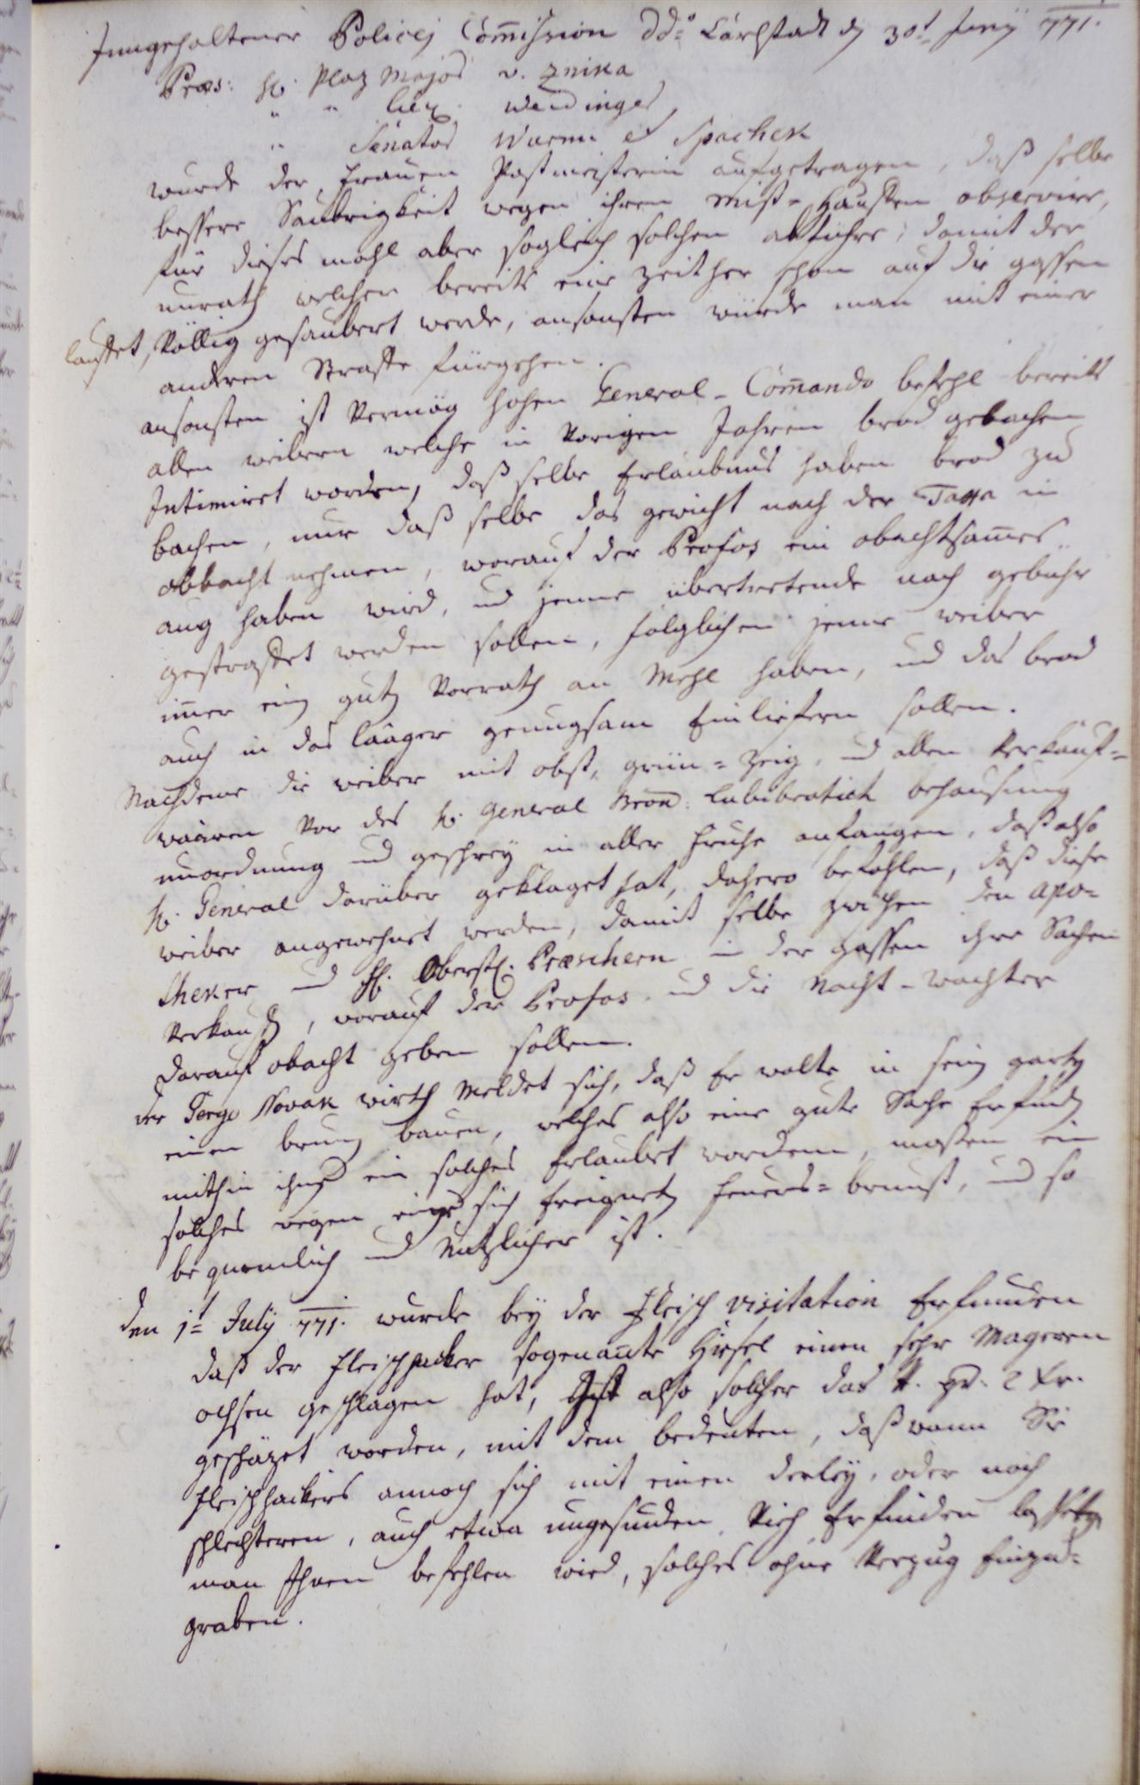 Inngehaltener Policej Com̄ission dd:º Carlstadt d 30t Junÿ 771.
Præs: H: Plaz Major v. Znika
" " Lieu: Weidinger
" Senator Wuemi et Spachek
wurde der Frauen Postmeisterin aufgetragen, daß selbe
bessere Saubrigkeit wegen ihrem Mist-Hauffen observire,
für dieses mahl aber sogleich solchen abführe, damit der
unrath welcher bereits eine Zeither schon auf die gassen
lauffet, völlig gesaubert werde, ansonsten würde man mit einer
anderen Straffe fürgehen.
ansonsten ist vermög hohen General-Com̄ando befehl bereits
allen weibern welche in vorigen Jahren brod gebachen
Intimiret worden, daß selbe Erlaubnus haben brod zu
bachen, nur daß selbe das gewicht nach der Taxa in
obbacht nehmen, worauf der Profos ein obachtsam̄es
aug haben wird, und jenne übertrettende nach gebühr
gestraffet werden sollen, folglichen jenne weiber
im̄er ein gutt Vorrath an Mehl haben, und das brod
auch in das Laager genugsam Einliefern sollen.
Nachdeme die weiber mit obst, grün-Zeig, und allen Verkauf-
waären vor des H: General Bron: behausung
unordnung und geschreÿ in aller Fruhe anfangen, daß also
H: General darüber geklaget hat, dahero befohlen, daß diese
weiber angewehnet werden, damit selbe zwischen den Apo-
theker und H: Oberstl: Præschern in der gassen ihre Sachen
verkauffen, worauf der Profos und die Nacht-wachter
darauf obacht geben sollen.
der Novak wirth Meldet sich, daß Er wolte in sein gartten
einen brunn bauen, welches also eine gute Sache Erfunden
mithin ihme ein solches Erlaubet worden, massen ein
solches wegen eines sich Ereignetten Feuers-brunst, und so
bequemlich und Nutzlicher ist.
den 1t July 771. wurde beÿ der Fleisch visitation Erfunden
daß der Fleischhacker sogenan̄te Hiesel einen sehr Mageren
ochsen geschlagen hat, ist also solcher das ℔. pr. 2 kr.
geschäzet worden, mit dem bedeuten, daß wann die
Fleischhackers annoch sich mit einen derleÿ, oder noch
schlechteren, auch etwa ungesunden Vieh Erfinden lassete,
man Ihnen befehlen wird, solches ohne Verzug Einzu-
graben.